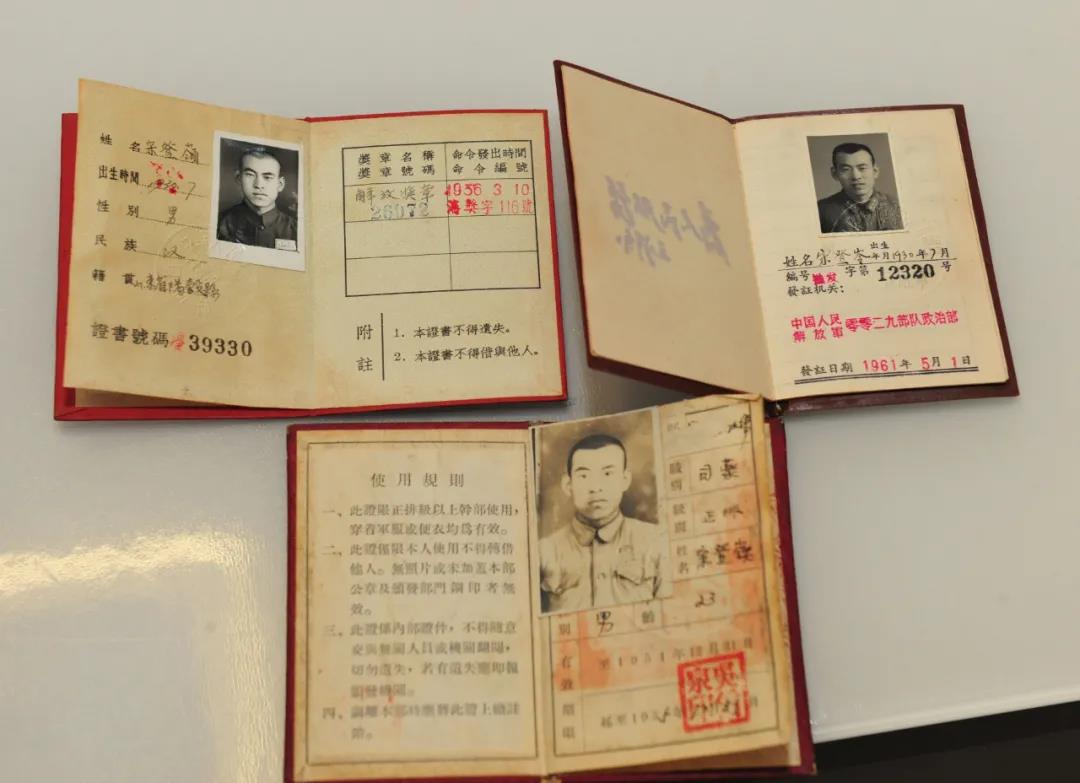 姓 名 宋登嶺
出生時間
性 別 男
民 族 汉
籍 貫 山東
證書號碼 39330
獎章名稱 命令發出時間
獎章號碼 命令編號
解放奬章 1956 3 10
26072 獎字116號
附註
1. 本證書不得遺失。
2. 本證書不得借與他人。
出生
姓名 宋登岺 年月1930年7月
編号 字第 12320 号
發証机关:
中国人民解放軍 零零二九部队政治部
發証日期 1961年 5月 1日
使用規則
一、此證限正排級以上幹部使用，
穿着軍服或便衣均爲有效。
二、此證僅限本人使用不得轉借
他人。無照片或未加蓋本部
公章及頒發部門鋼印者無
效。
三、此證係內部證件，不得隨意
交與無關人員或機關翻閱，
切勿遺失，若有遺失應即報
頒發機關。
四、調離本部時應將此證上繳註
銷。
職別 司藥
級別 正排
姓名 宋登嶺
別 男 齡 23
有效期限
至1954年12月31日